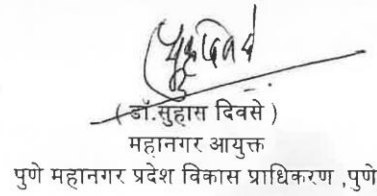 ( डॉ.सुहास दिवसे )
महानगर आयुक्त
पुणे महानगर प्रदेश विकास प्राधिकरण ,पुणे